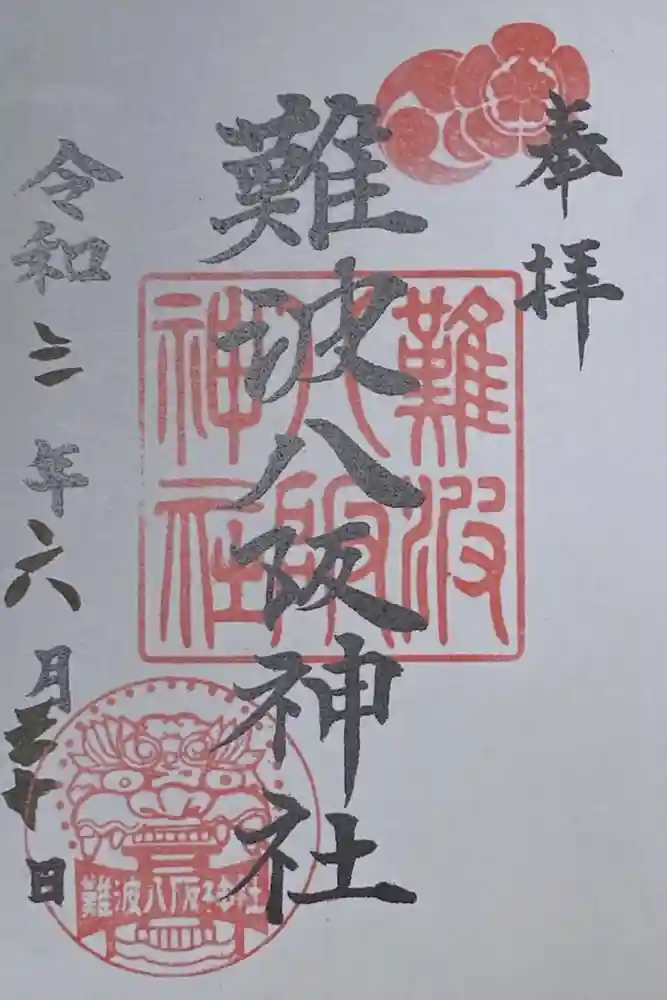 奉拝
難波八阪神社
難波
八阪
神社
令和三年六月三十日
難波八阪神社